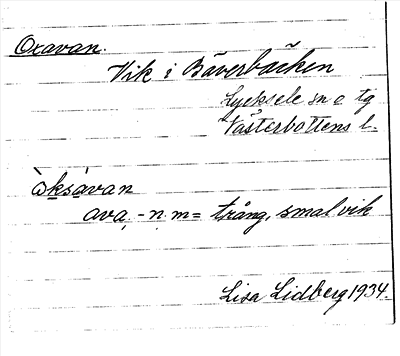 Oxavan.
Vik i Bäverbäcken
Lycksele sn o tg
Västerbottens l.
òksàvan
ava - n. m = trång, smal vik
Lisa Lidberg 1934.